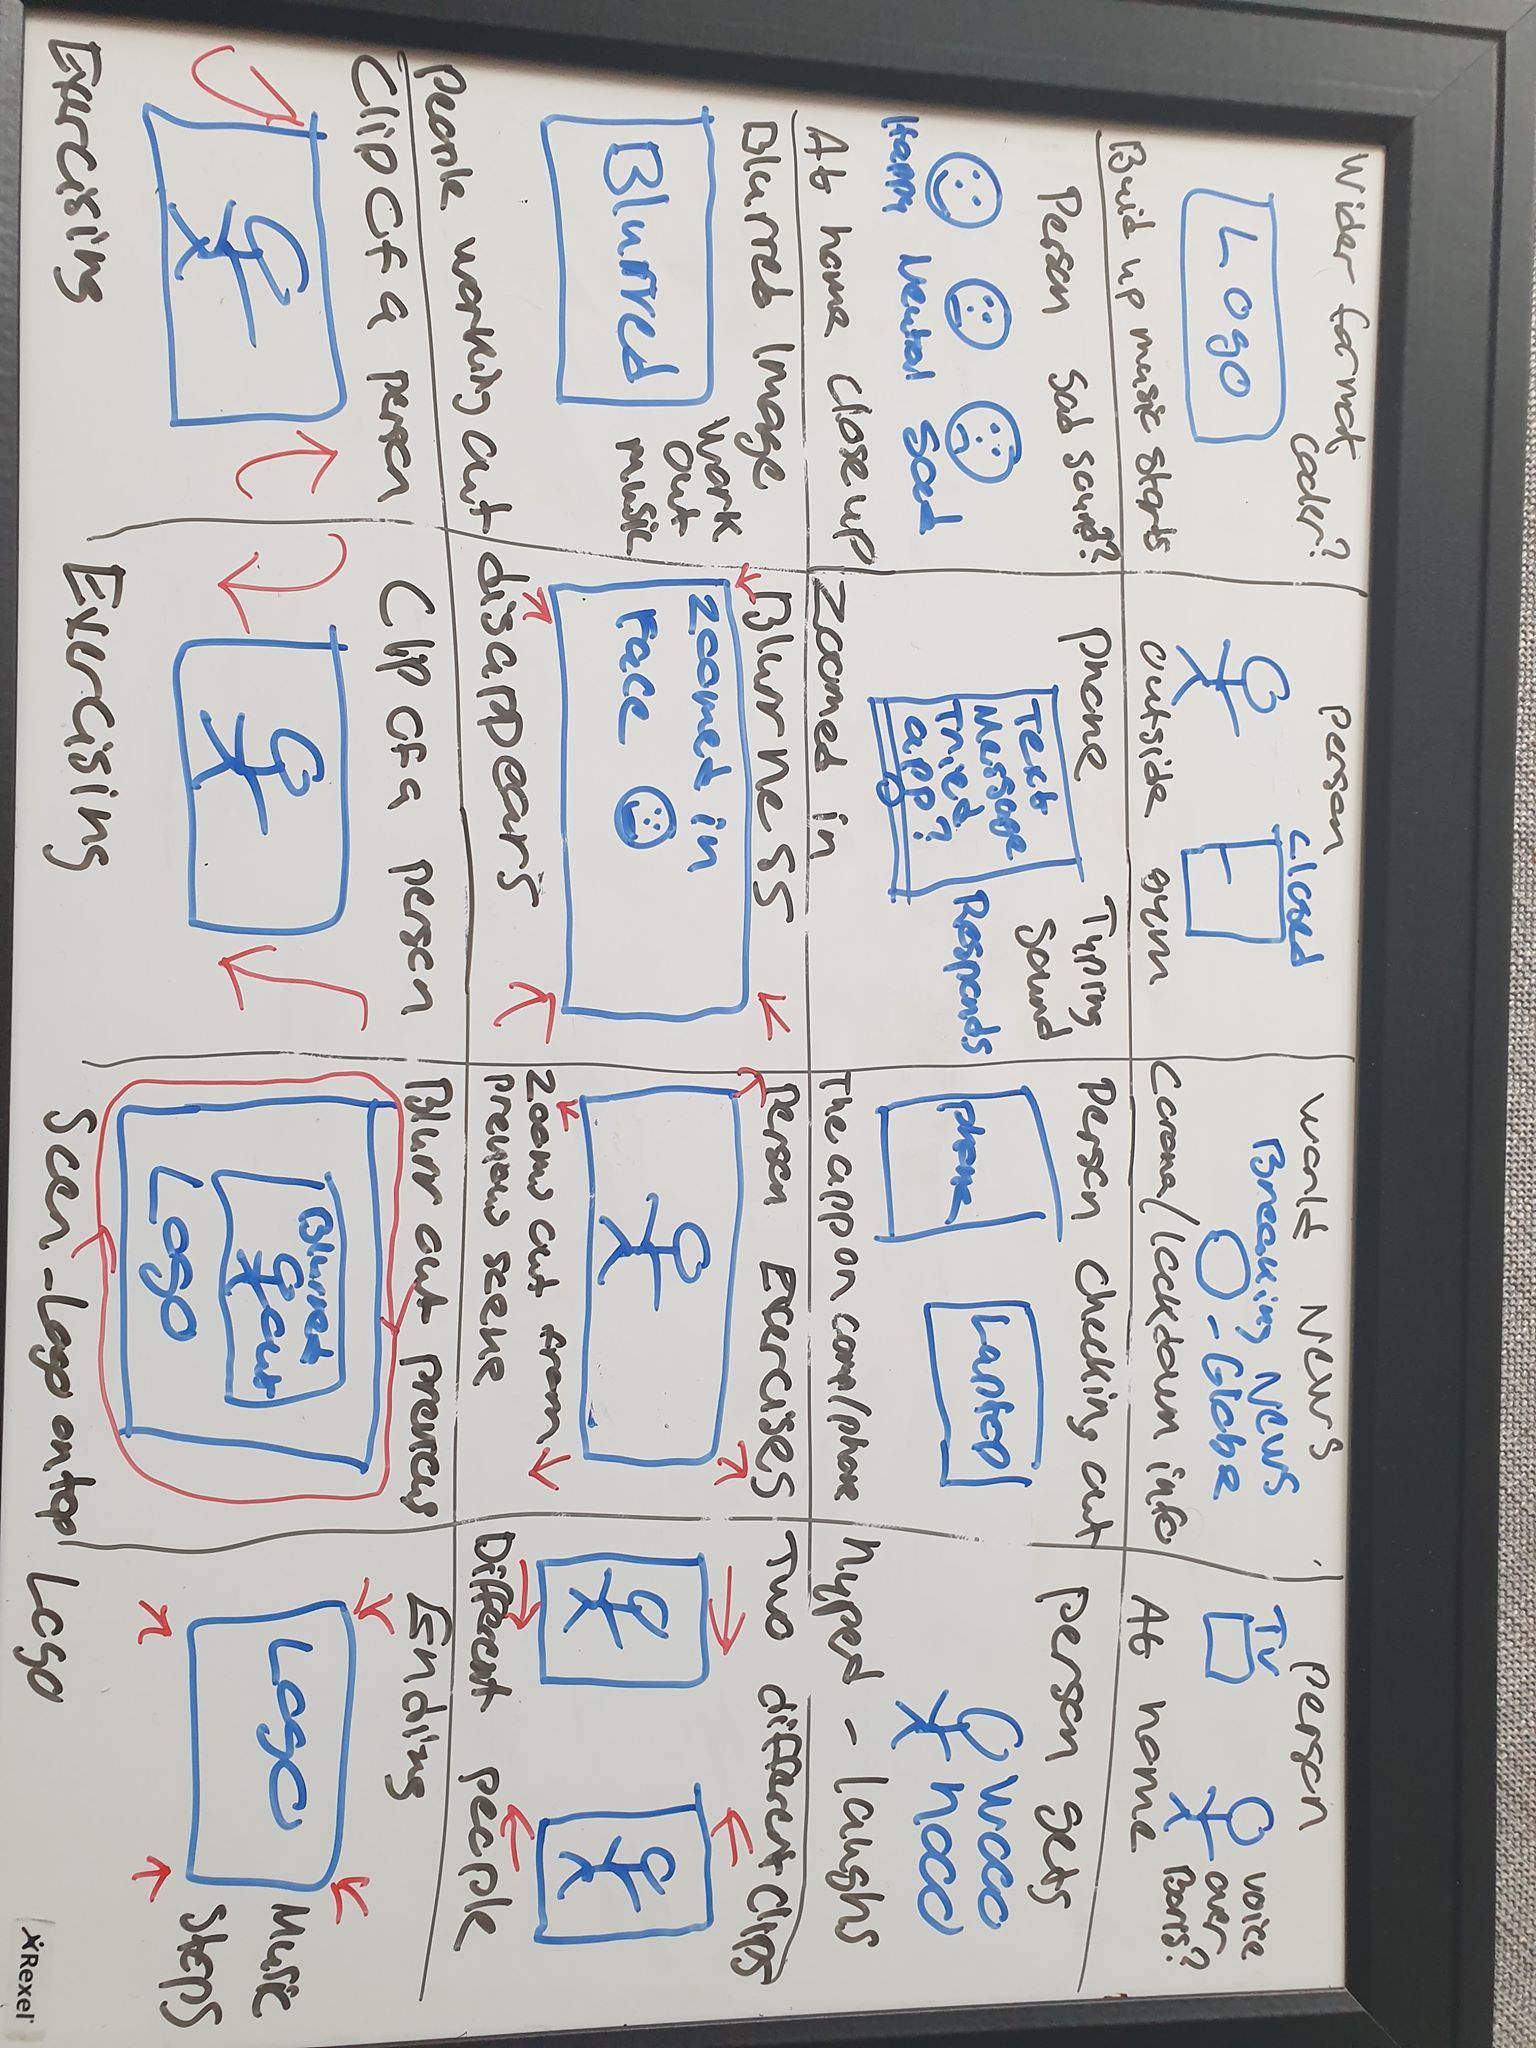 Wider format
cooler?
Logo
Build up music starts
person
closed
outside gym
World News
Breaking News
- Globe
Corona/lockdown info
person
TV
voice
over
Boris?
At home
Person Sad sound??
Happy Neutral Sad
At home close up
phone
Typing
Sound
Text
Message
Tried
app?
Responds
Zoomed in
Person checking out
phone
Laptop
The app on comp/phone
person gets
wooo
hooo
hyped - laughs
Blurred Image
Work
out
music
Blurred
People working out
Blurrness
Zoomed in
Face
disappears
Person Exercises
Zooms out from
previous scene
Two different clips
Different people
Clip of a person
Exercising
Clip of a person
Exercising
Blurr out previous
Blurred
out
Logo
Scen - Logo on top
Ending
Logo
Music
Stops
Logo
Rexel